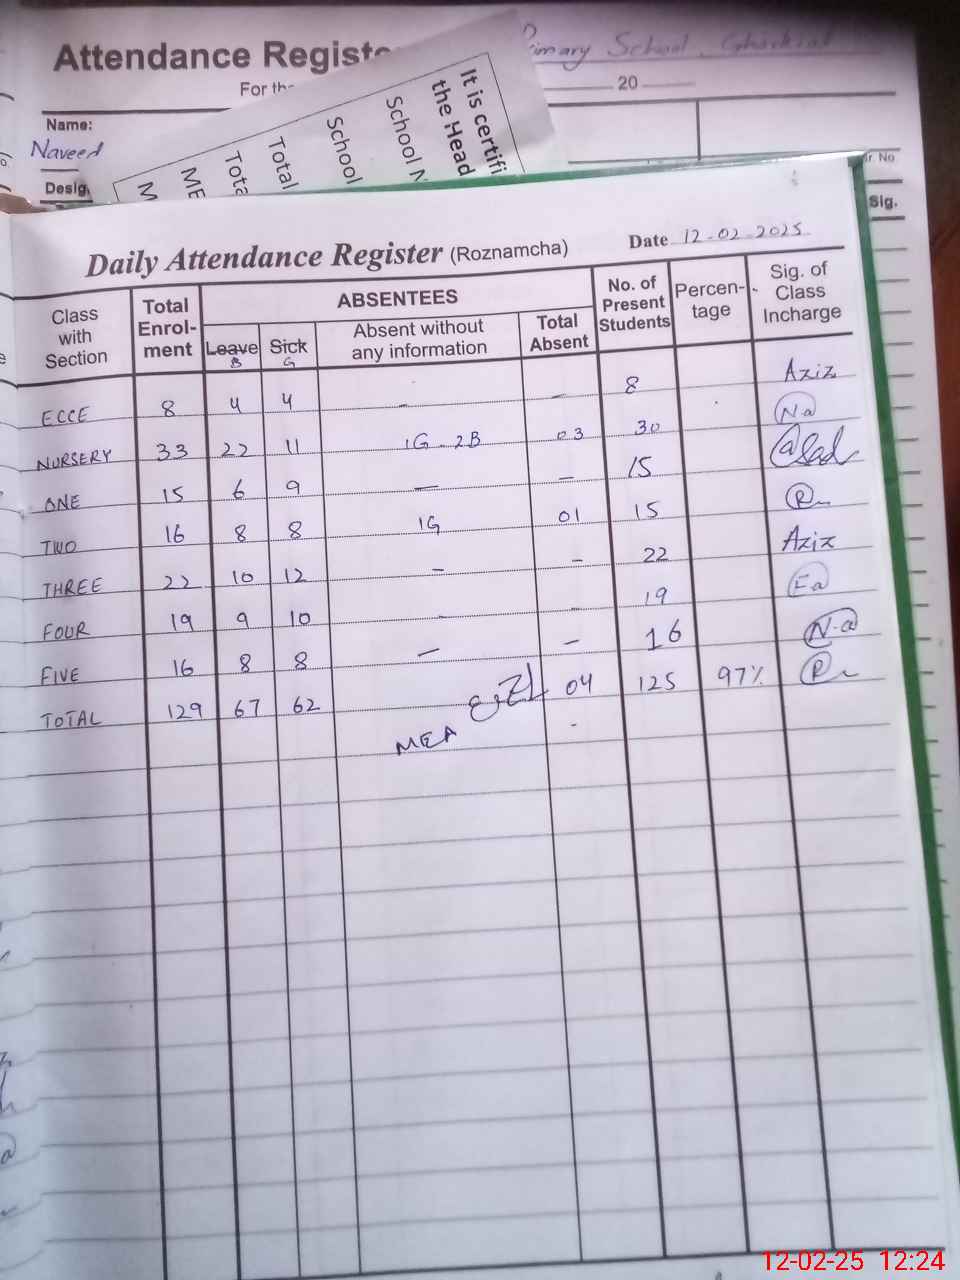 Attendance Register
Primary School
For the
20
Name:
Naveed
Desig.
Sig.
It is certifi
the Head
School N
School
Total
Tota
ME
M
Daily Attendance Register (Roznamcha) Date 12-02-2025
Class with Section Total Enrol-ment ABSENTEES No. of Present Students Percen-tage Sig. of Class Incharge
Leave Sick Absent without any information Total Absent
B G
ECCE 8 4 4 - - 8 Aziz
NURSERY 33 22 11 1G-2B 03 30 Na
ONE 15 6 9 - - 15
TWO 16 8 8 1G 01 15
THREE 22 10 12 - - 22 Aziz
FOUR 19 9 10 - - 19 Fa
FIVE 16 8 8 - - 16 N-a
TOTAL 129 67 62 04 125 97%
MEA
12-02-25 12:24